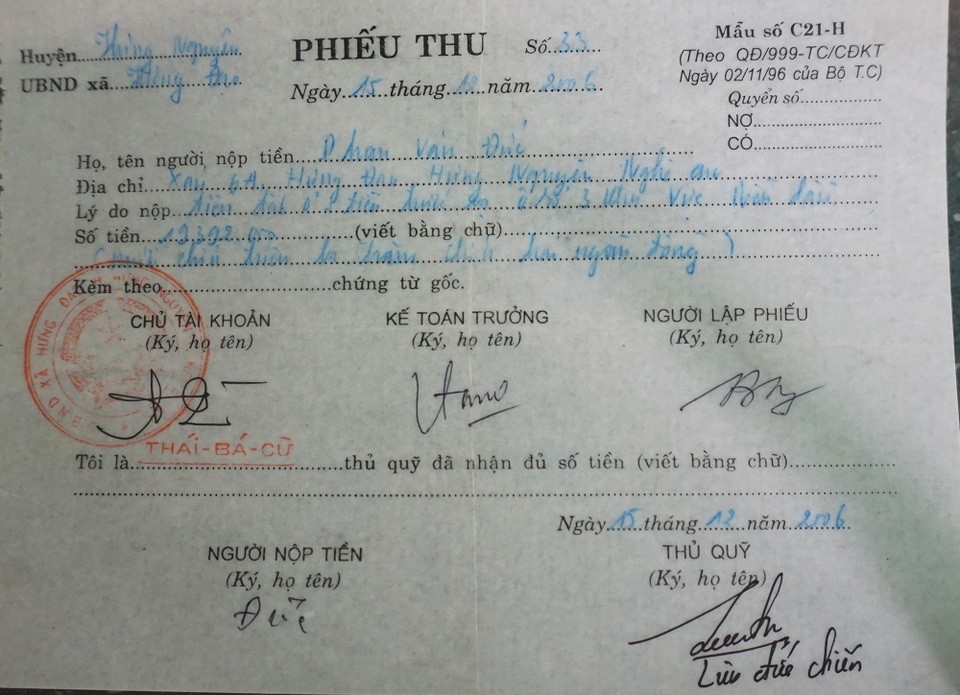 Huyện Hưng Nguyên
UBND xã Hưng Đạo
PHIẾU THU
Số 33
Ngày 15 tháng 12 năm 2006
Mẫu số C21-H
(Theo QĐ/999-TC/CĐKT
Ngày 02/11/96 của Bộ T.C)
Quyển số
NỢ
CÓ
Họ, tên người nộp tiền Phan Văn Đức
Địa chỉ Xóm 6A Hưng Đạo Hưng Nguyên Nghệ An
Lý do nộp tiền đất ở số 3 khu vực
Số tiền 19392.000 (viết bằng chữ)
(mười chín triệu ba trăm chín hai ngàn đồng)
Kèm theo chứng từ gốc.
CHỦ TÀI KHOẢN
(Ký, họ tên)
KẾ TOÁN TRƯỞNG
(Ký, họ tên)
NGƯỜI LẬP PHIẾU
(Ký, họ tên)
THÁI-BÁ-CỪ
Tôi là thủ quỹ đã nhận đủ số tiền (viết bằng chữ)
Ngày 15 tháng 12 năm 2006
NGƯỜI NỘP TIỀN
(Ký, họ tên)
Đức
THỦ QUỸ
(Ký, họ tên)
Lưu Đức Chiến